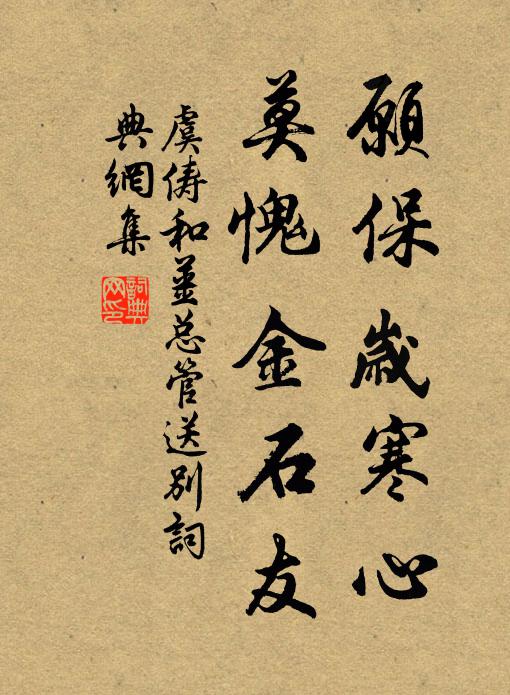 願保歲寒心
莫愧金石友
虞儔和姜总管送别詞
典網集
詞典
网印